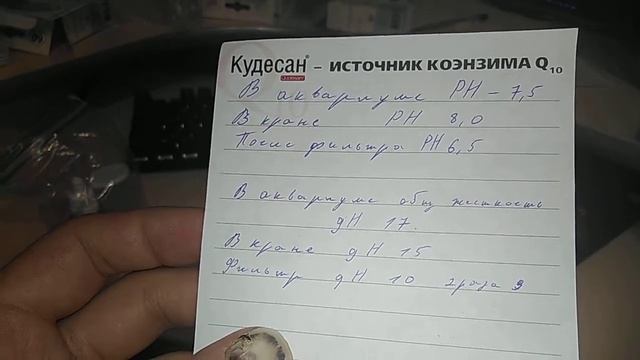 Кудесан® – ИСТОЧНИК КОЭНЗИМА Q10
В аквариуме PH – 7,5
В кране PH 8,0
После фильтра PH 6,5
В аквариуме общ жесткость
gH 17.
В кране gH 15
Фильтр gH 10